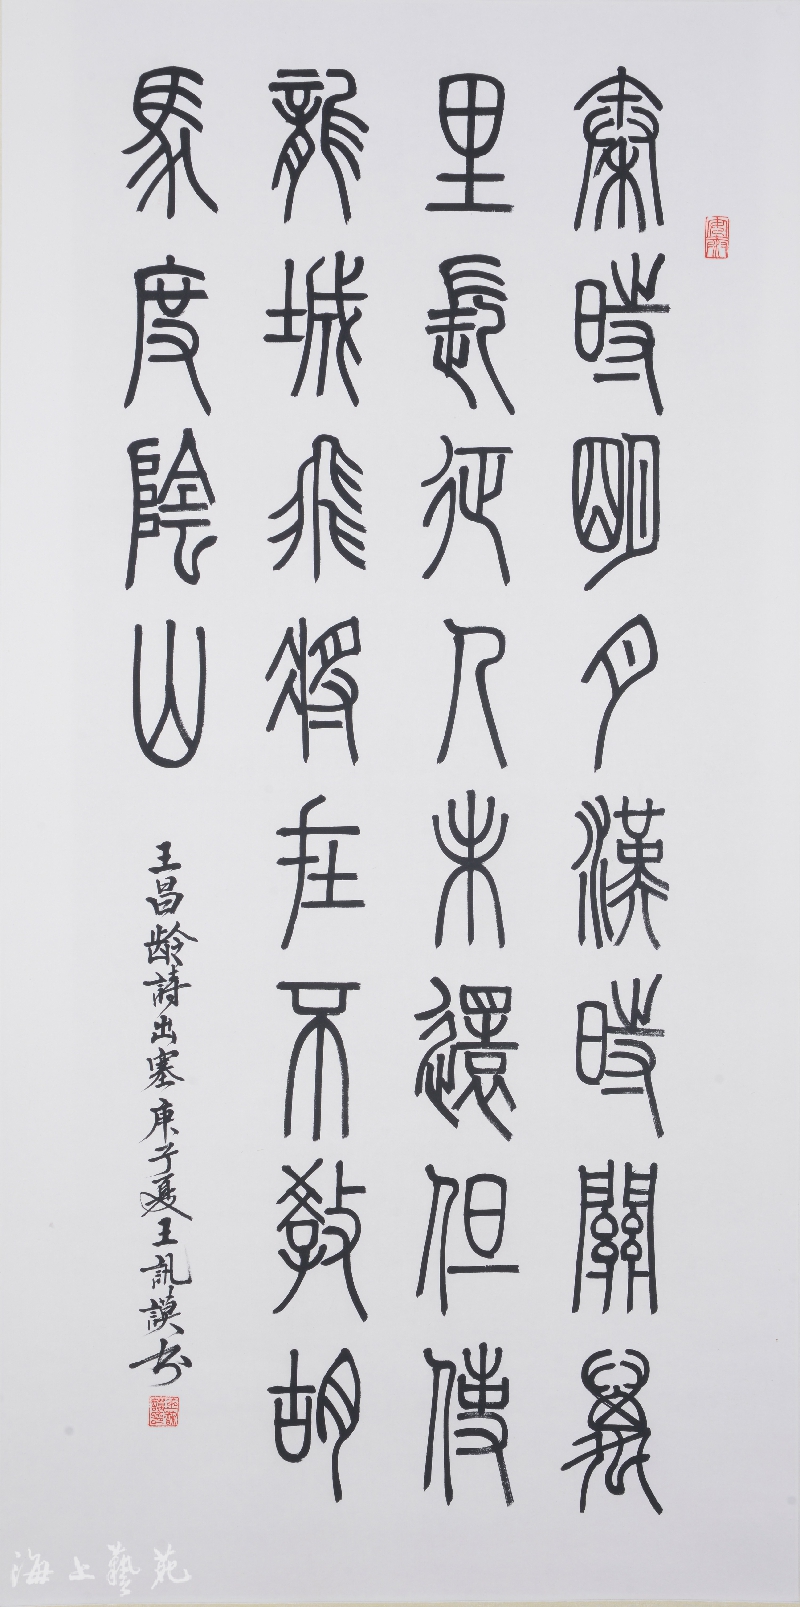 秦時明月漢時關萬
里長征人未還但使
龍城飛將在不教胡
馬度陰山
王昌龄詩出塞庚子夏王訊謨书
海上藝苑